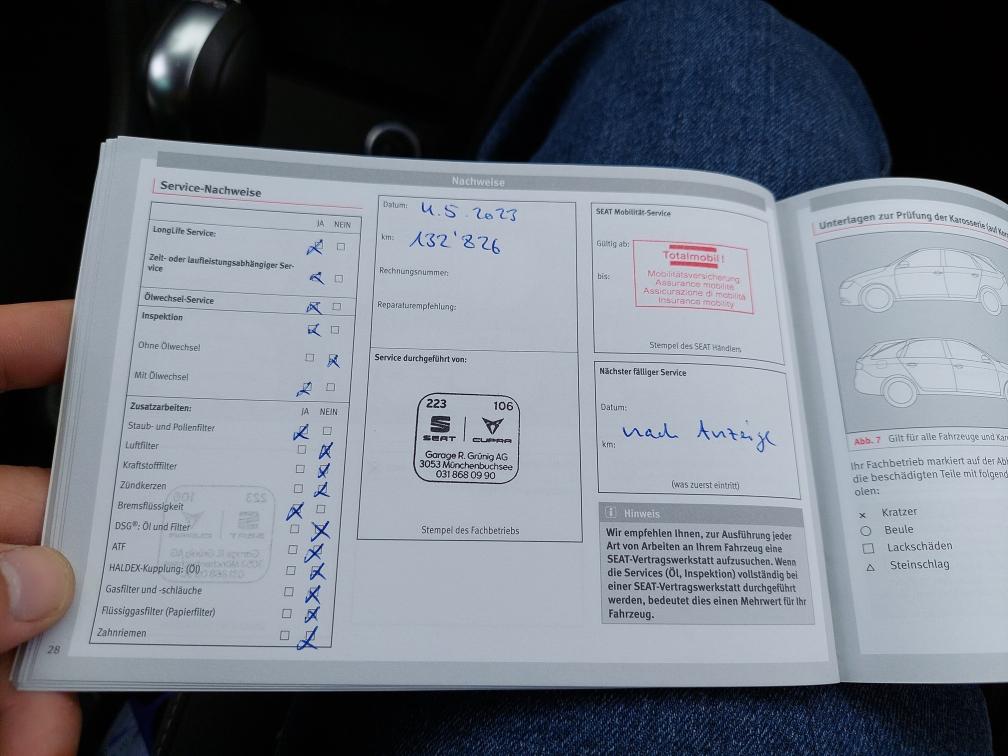 Nachweise
Service-Nachweise
JA NEIN
LongLife Service:
Zeit- oder laufleistungsabhängiger Ser-
vice
Ölwechsel-Service
Inspektion
Ohne Ölwechsel
Mit Ölwechsel
Zusatzarbeiten: JA NEIN
Staub- und Pollenfilter
Luftfilter
Kraftstofffilter
Zündkerzen
Bremsflüssigkeit
DSG®: Öl und Filter
ATF
HALDEX-Kupplung: (Öl)
Gasfilter und -schläuche
Flüssiggasfilter (Papierfilter)
Zahnriemen
28
Datum: 4.5.2023
km: 132'826
Rechnungsnummer:
Reparaturempfehlung:
Service durchgeführt von:
223 106
SEAT CUPRA
Garage R. Grünig AG
3053 Münchenbuchsee
031 868 09 90
Stempel des Fachbetriebs
SEAT Mobilität-Service
Gültig ab:
bis:
Totalmobil!
Mobilitätsversicherung
Assurance mobilité
Assicurazione di mobilità
Insurance mobility
Stempel des SEAT Händlers
Nächster fälliger Service
Datum:
km: nach Anzeige
(was zuerst eintritt)
Hinweis
Wir empfehlen Ihnen, zur Ausführung jeder
Art von Arbeiten an Ihrem Fahrzeug eine
SEAT-Vertragswerkstatt aufzusuchen. Wenn
die Services (Öl, Inspektion) vollständig bei
einer SEAT-Vertragswerkstatt durchgeführt
werden, bedeutet dies einen Mehrwert für Ihr
Fahrzeug.
Unterlagen zur Prüfung der Karosserie (auf
Abb. 7 Gilt für alle Fahrzeuge und
Ihr Fachbetrieb markiert auf der
die beschädigten Teile mit
olen:
Kratzer
Beule
Lackschäden
Steinschlag